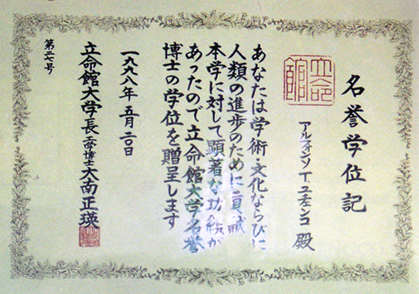 名誉学位記
アルフォンソ T ユチェンコ 殿
あなたは学術・文化ならびに
人類の進歩のために貢献
本学に対して顕著な功績が
あったので立命館大学名誉
博士の学位を贈呈します
一九九八年五月二〇日
立命館大学長 工学博士 大南正瑛
第二七号